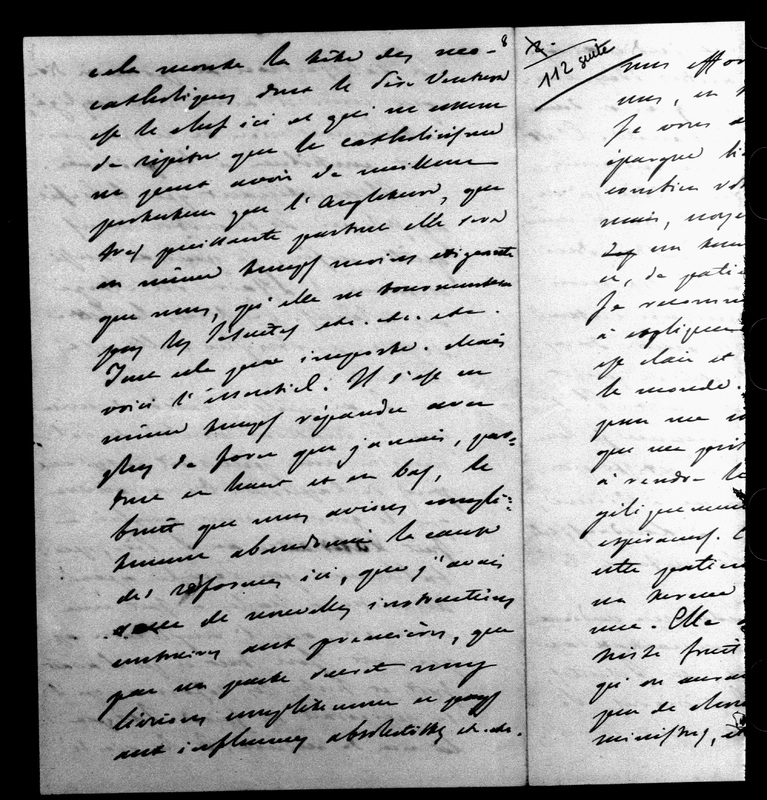 cela monte la tête des néo-
catholiques dont le Père Ventura
est le chef ici et qui ne cessent
de répéter que le catholicisme
ne peut avoir de meilleur
protecteur que l'Angleterre, que
très puissante partout elle sera
en même temps moins exigeante
que nous, qu'elle ne tourmentera
pas les Jésuites etc. etc. etc.
Tout cela peu importe. Mais
voici l'essentiel. Il s'est en
même temps répandu avec
plus de force que jamais, par-
tout en haut et en bas, le
bruit que nous avions compl-
tement abandonné la cause
des réformes ici, que j'avais
de nouvelles instructions
contraires aux premières, que
par un pacte secret nous
livrions complètement ce pays
aux influences absolutistes etc. etc.
8
112 suite
nous effor
nous, en
Je vous
épargne
mais,
un
et, de pati
Je recomm
à expliquer
est clair et
le monde.
pour me
que me
à rendre le
espérances.
cette patien
un terme
nue. Elle
triste fruit
qu'on aura
peu de
ministres, et